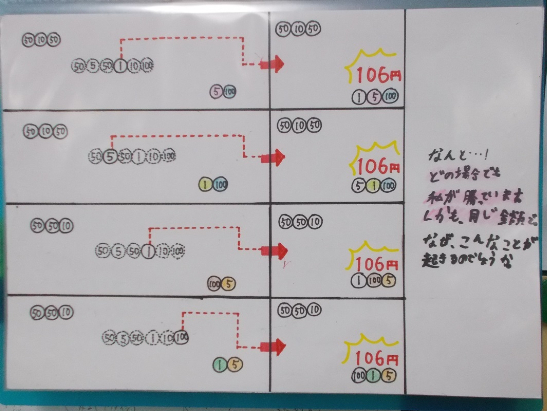 50 10 50
50 5 50 1 10 100
5 100
50 10 50
106円
1 5 100
50 10 50
50 5 50 1 10 100
1 100
50 10 50
106円
5 1 100
50 50 10
50 5 50 1 10 100
100 5
50 50 10
106円
1 100 5
50 50 10
50 5 50 1 10 100
1 5
50 50 10
106円
100 1 5
なんと…!
どの場合でも
私が勝っています
しかも、同じ金額で。
なぜ、こんなことが
起きるのでしょうな